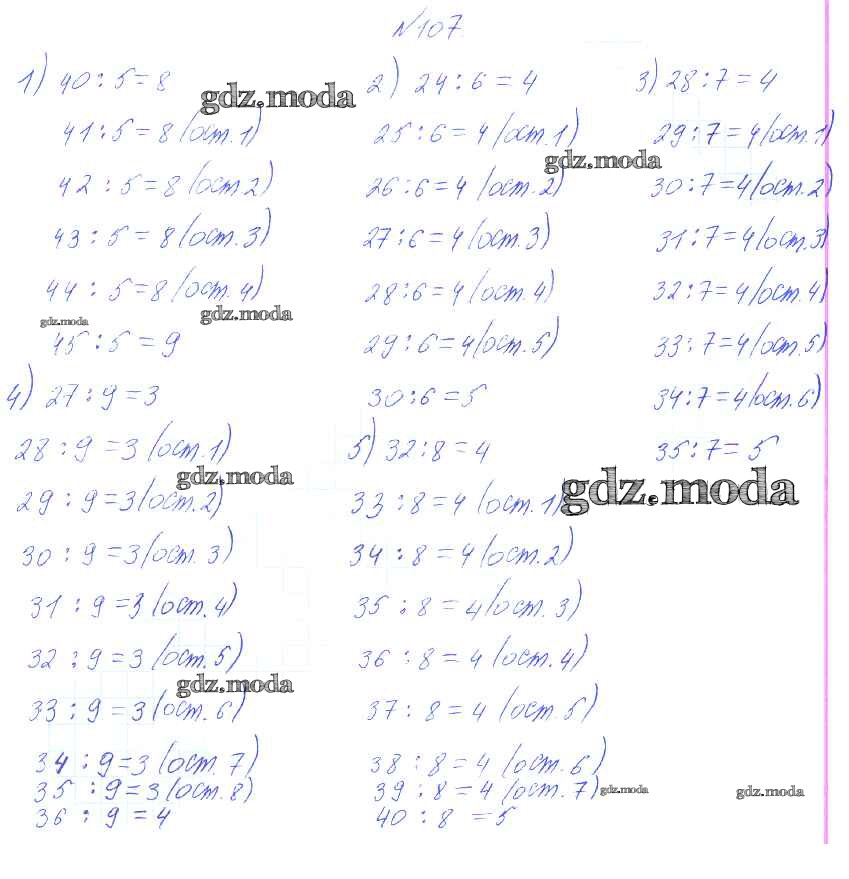 №107.
1) 40 : 5 = 8
41 : 5 = 8 (ост. 1)
42 : 5 = 8 (ост. 2)
43 : 5 = 8 (ост. 3)
44 : 5 = 8 (ост. 4)
45 : 5 = 9
2) 24 : 6 = 4
25 : 6 = 4 (ост. 1)
26 : 6 = 4 (ост. 2)
27 : 6 = 4 (ост. 3)
28 : 6 = 4 (ост. 4)
29 : 6 = 4 (ост. 5)
30 : 6 = 5
3) 28 : 7 = 4
29 : 7 = 4 (ост. 1)
30 : 7 = 4 (ост. 2)
31 : 7 = 4 (ост. 3)
32 : 7 = 4 (ост. 4)
33 : 7 = 4 (ост. 5)
34 : 7 = 4 (ост. 6)
35 : 7 = 5
4) 27 : 9 = 3
28 : 9 = 3 (ост. 1)
29 : 9 = 3 (ост. 2)
30 : 9 = 3 (ост. 3)
31 : 9 = 3 (ост. 4)
32 : 9 = 3 (ост. 5)
33 : 9 = 3 (ост. 6)
34 : 9 = 3 (ост. 7)
35 : 9 = 3 (ост. 8)
36 : 9 = 4
5) 32 : 8 = 4
33 : 8 = 4 (ост. 1)
34 : 8 = 4 (ост. 2)
35 : 8 = 4 (ост. 3)
36 : 8 = 4 (ост. 4)
37 : 8 = 4 (ост. 5)
38 : 8 = 4 (ост. 6)
39 : 8 = 4 (ост. 7)
40 : 8 = 5
gdz.moda
gdz.moda
gdz.moda
gdz.moda
gdz.moda
gdz.moda
gdz.moda
gdz.moda
gdz.moda